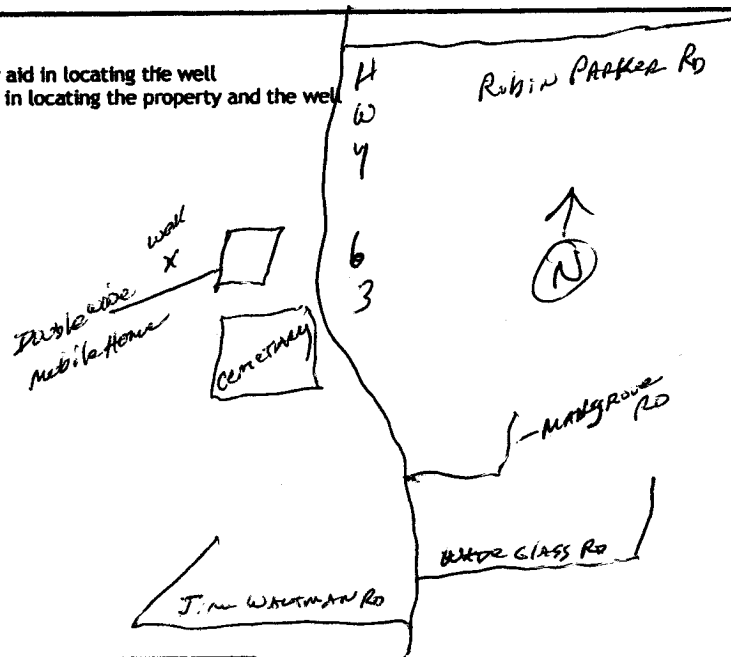 aid in locating the well
in locating the property and the well
Robin Parker RD
H
W
Y
6
3
well
X
Doublewide
Mobile Home
Cemetary
N
Mangrove
RD
Wade Glass RD
Jim Waltman RD